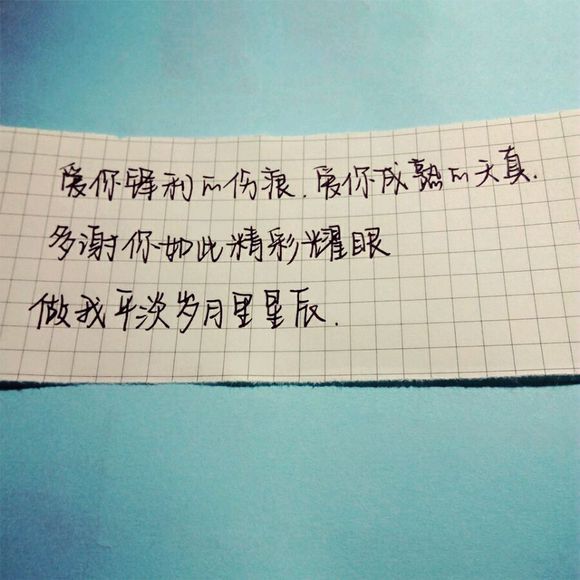 爱你锋利的伤痕.爱你成熟的天真.
多谢你如此精彩耀眼
做我平淡岁月里星辰.